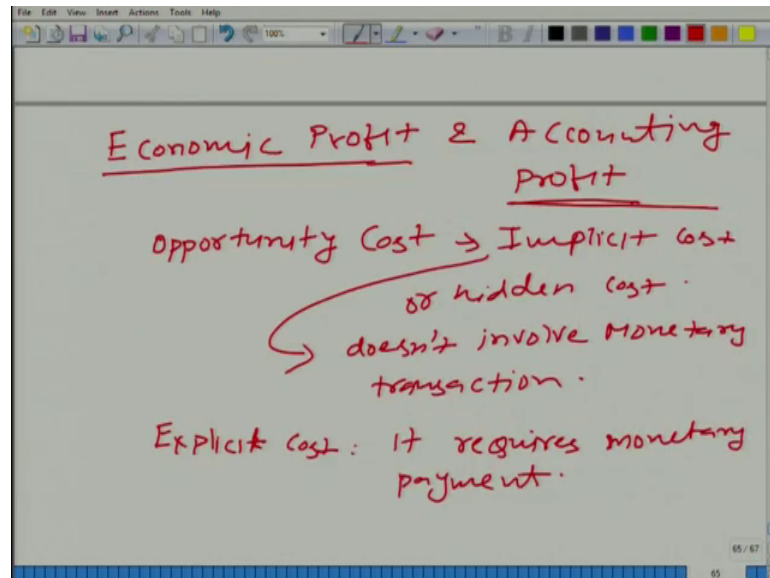 File Edit View Insert Actions Tools Help
100%
B I
Economic Profit & Accounting
Profit
Opportunity Cost → Implicit cost
or hidden cost.
doesn't involve Monetary
transaction.
Explicit cost: It requires monetary
payment.
65/67
65